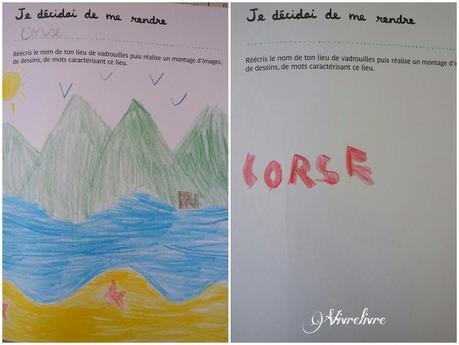 Je décidai de me rendre
Corse
Réécris le nom de ton lieu de vadrouilles puis réalise un montage d'images,
de dessins, de mots caractérisant ce lieu.
Je décidai de me rendre
Réécris le nom de ton lieu de vadrouilles puis réalise un montage d'i
de dessins, de mots caractérisant ce lieu.
CORSE
Vivrelivre